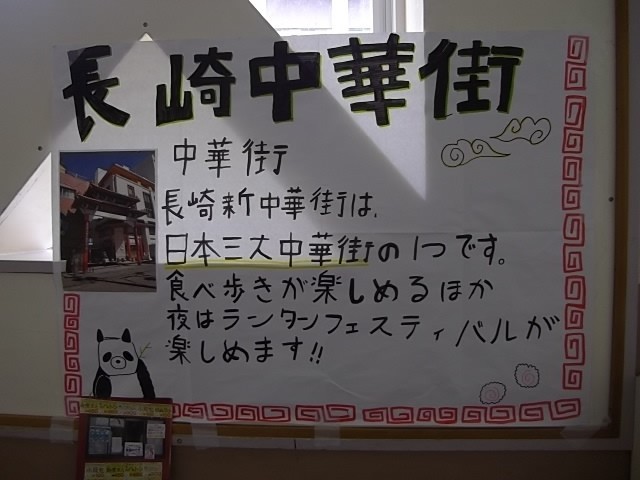 長崎中華街
中華街
長崎新中華街は、
日本三大中華街の1つです。
食べ歩きが楽しめるほか
夜はランタンフェスティバルが
楽しめます!!